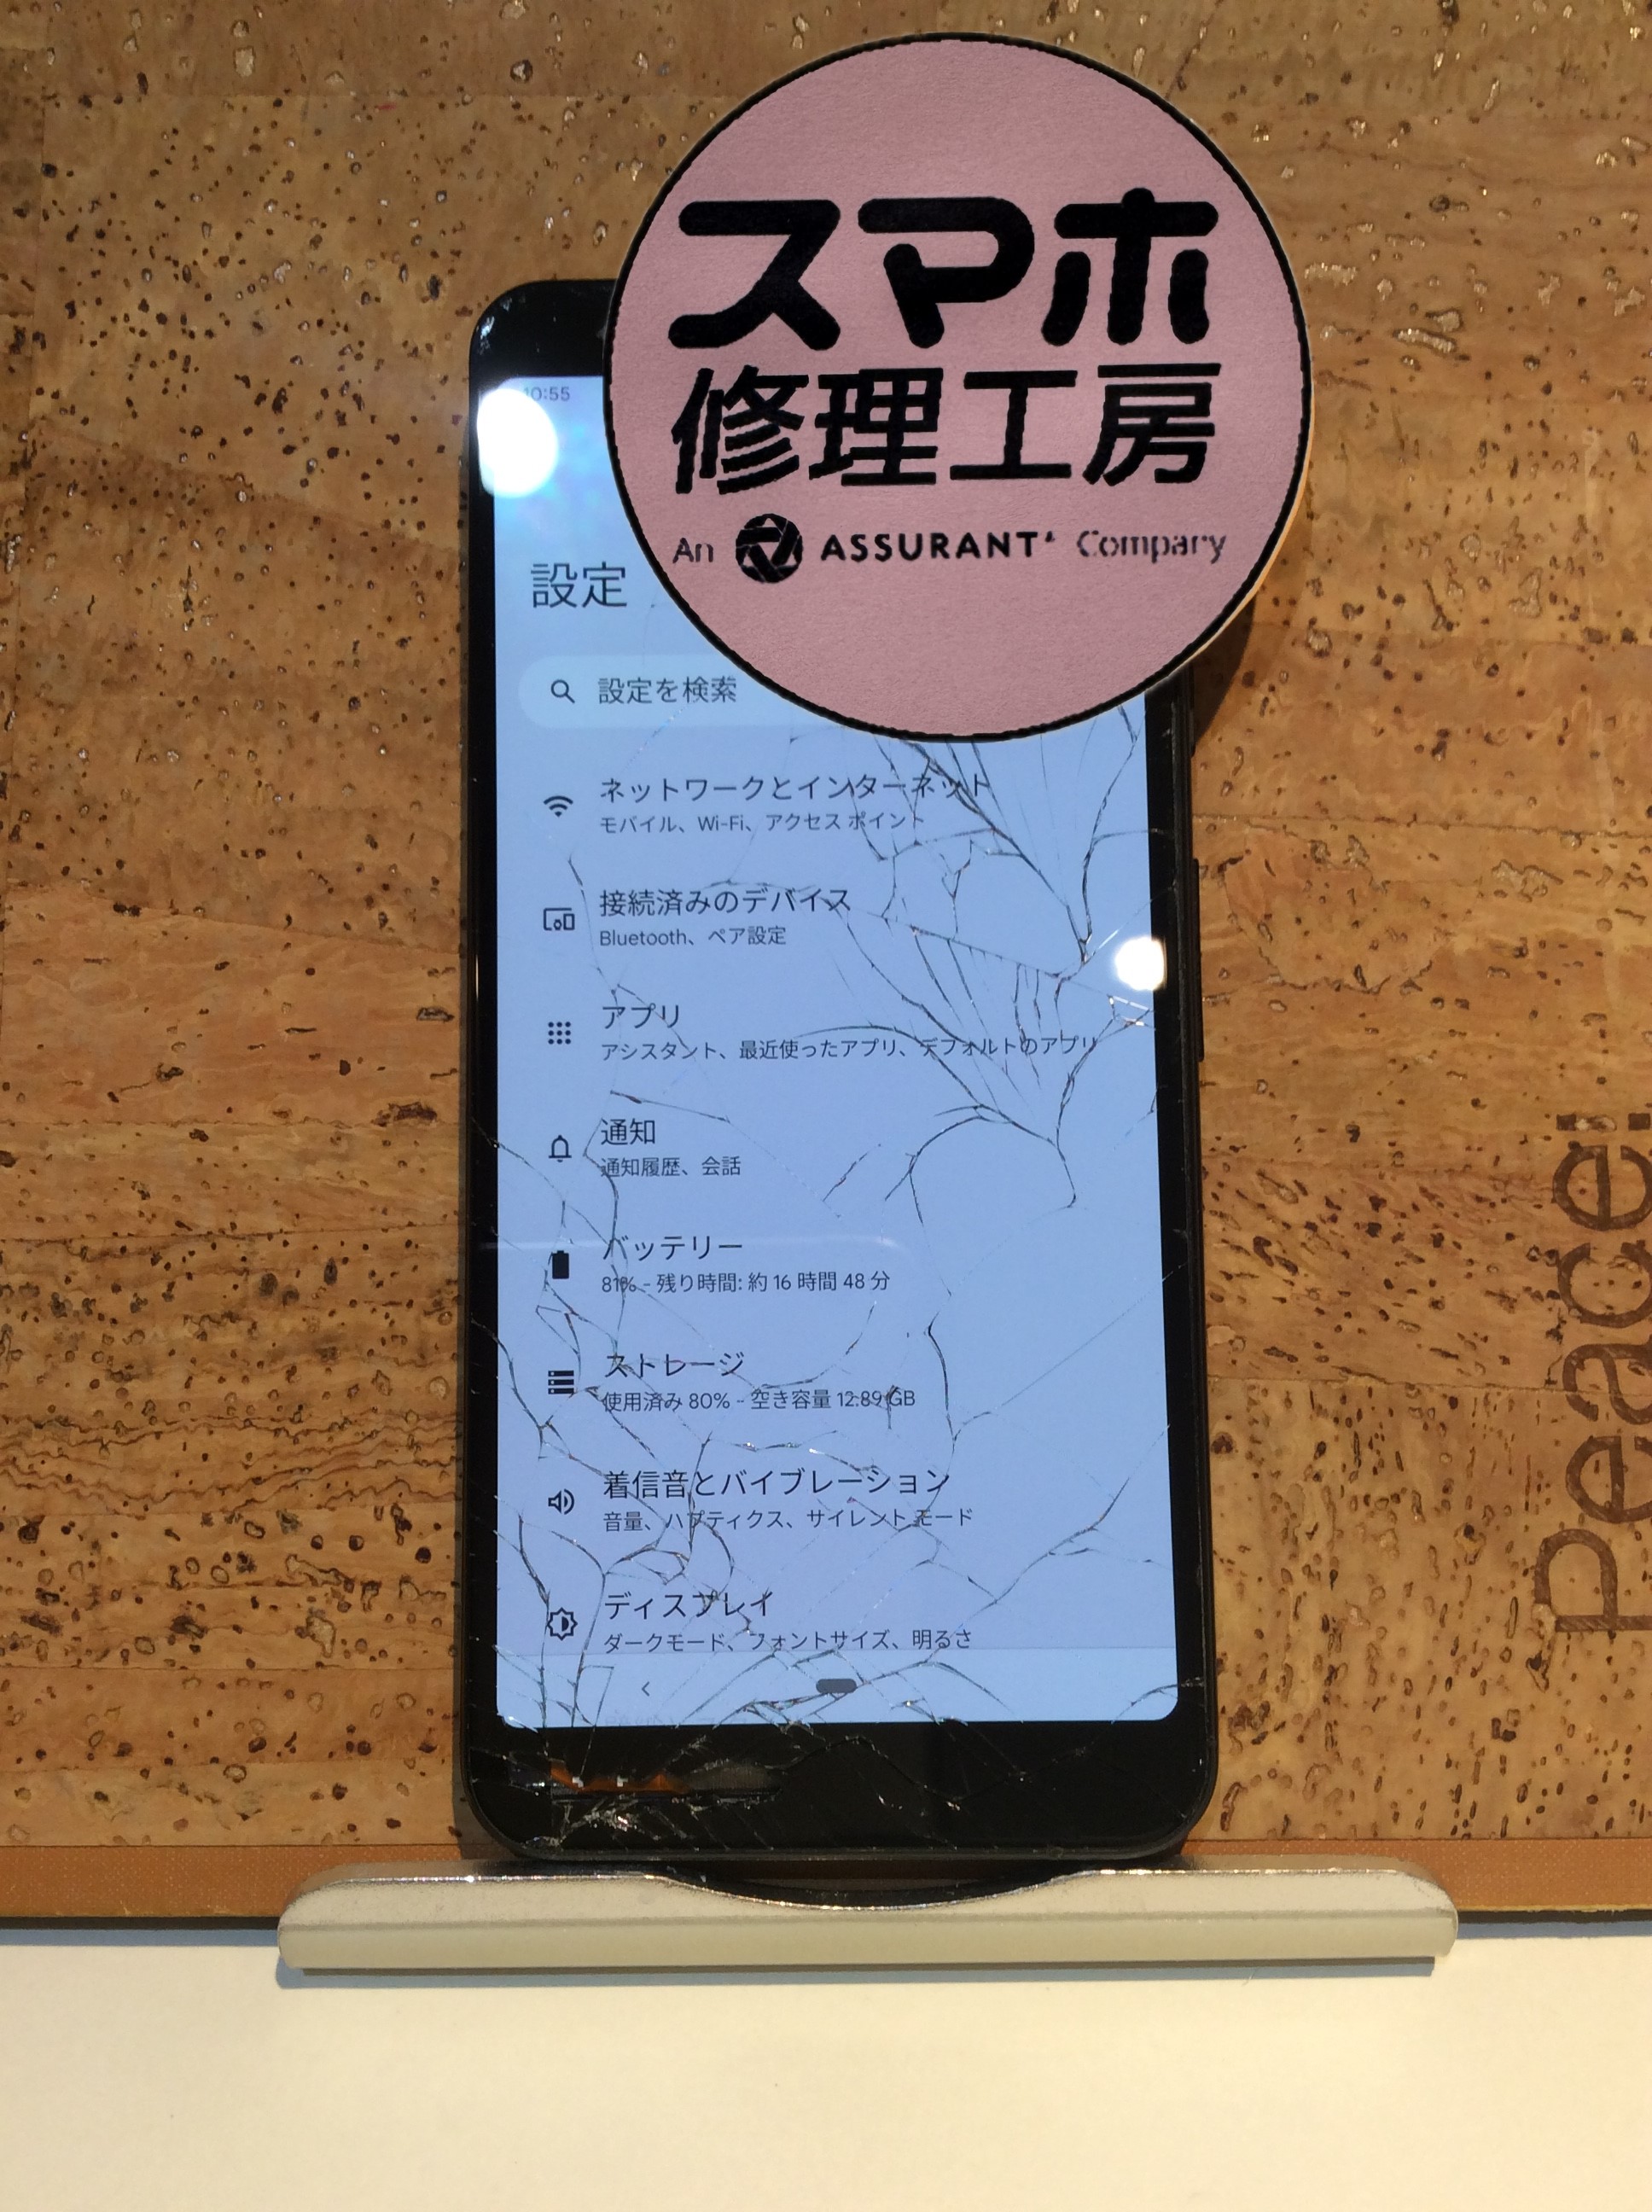 スマホ
修理工房
An ASSURANT Company
10:55
設定
設定を検索
ネットワークとインターネット
モバイル、Wi-Fi、アクセス ポイント
接続済みのデバイス
Bluetooth、ペア設定
アプリ
アシスタント、最近使ったアプリ、デフォルトのアプリ
通知
通知履歴、会話
バッテリー
81% - 残り時間: 約 16 時間 48 分
ストレージ
使用済み 80% - 空き容量 12.89 GB
着信音とバイブレーション
音量、ハプティクス、サイレント モード
ディスプレイ
ダークモード、フォントサイズ、明るさ
Peace!